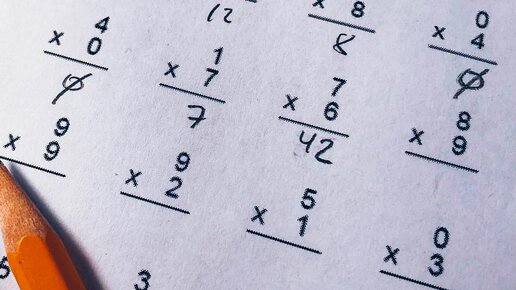 12
x 8
8
0
x 4
0
4
x 0
0
1
x 7
7
7
x 6
42
8
x 9
9
x 9
9
x 2
5
x 1
0
x 3
5
3